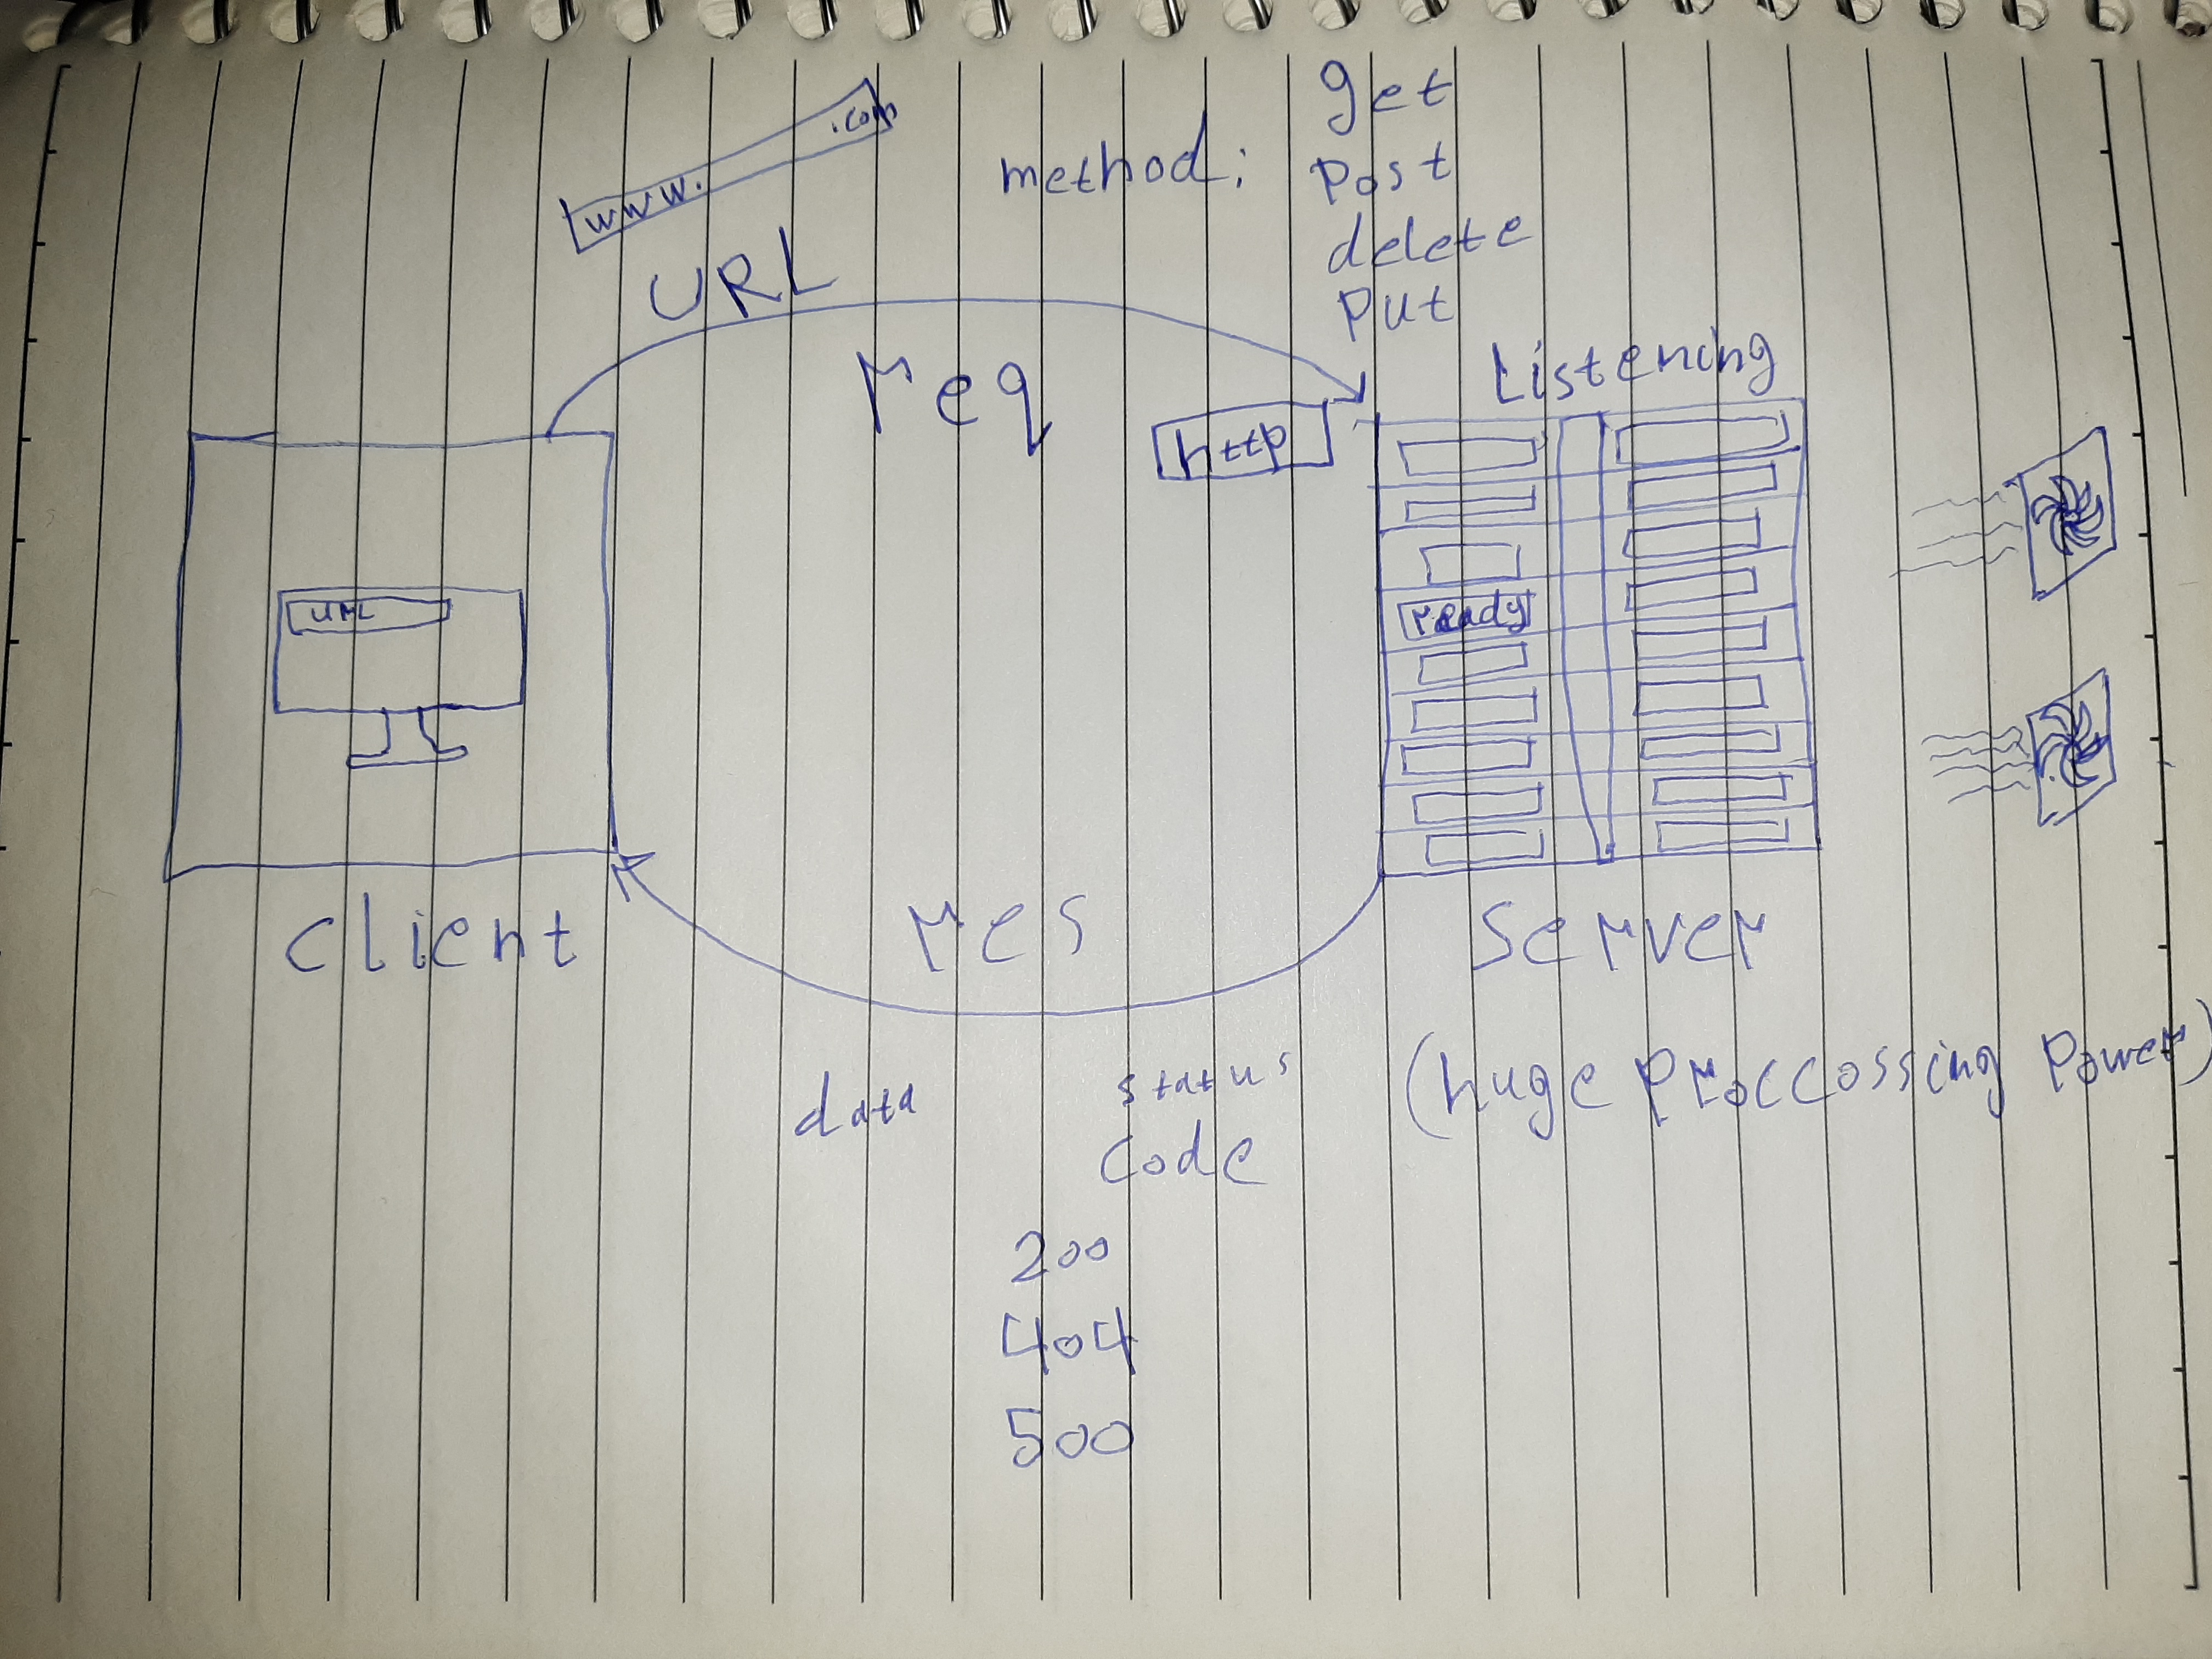 www. .com
URL
method:
get
post
delete
put
req
http
Listening
URL
ready
client
res
server
(huge proccossing power)
data
status
code
200
404
500